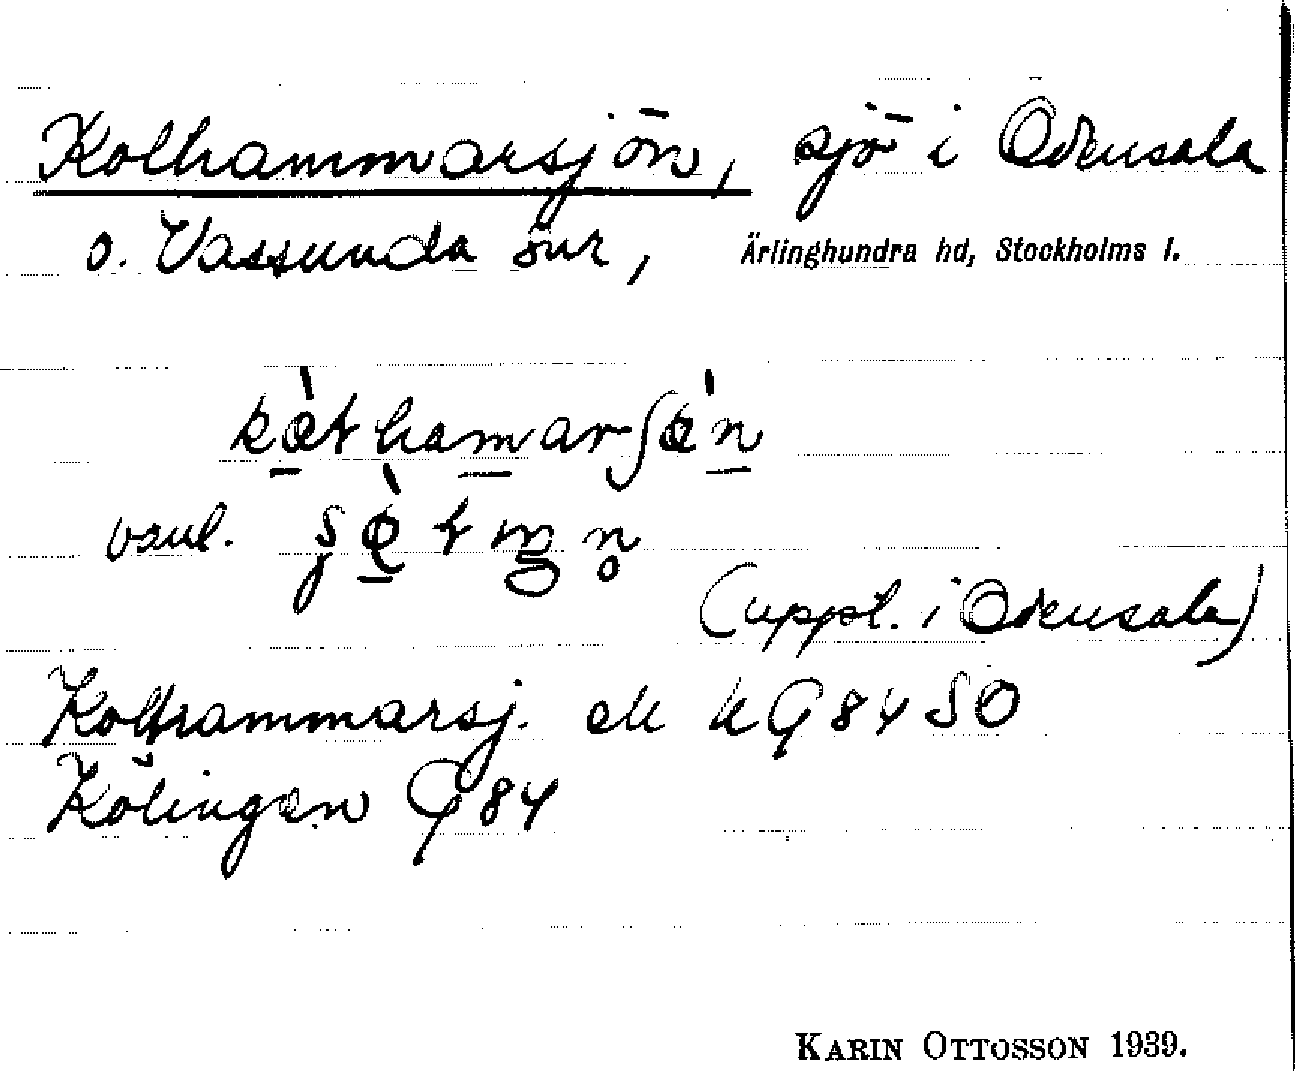 Kolhammarsjön, sjö i Odensala
o. Vassunda snr, Ärlinghundra hd, Stockholms l.
vanl.
(uppt. i Odensala)
Kolhammarsj. ek kG84SO
Kölingen G84
KARIN OTTOSSON 1939.